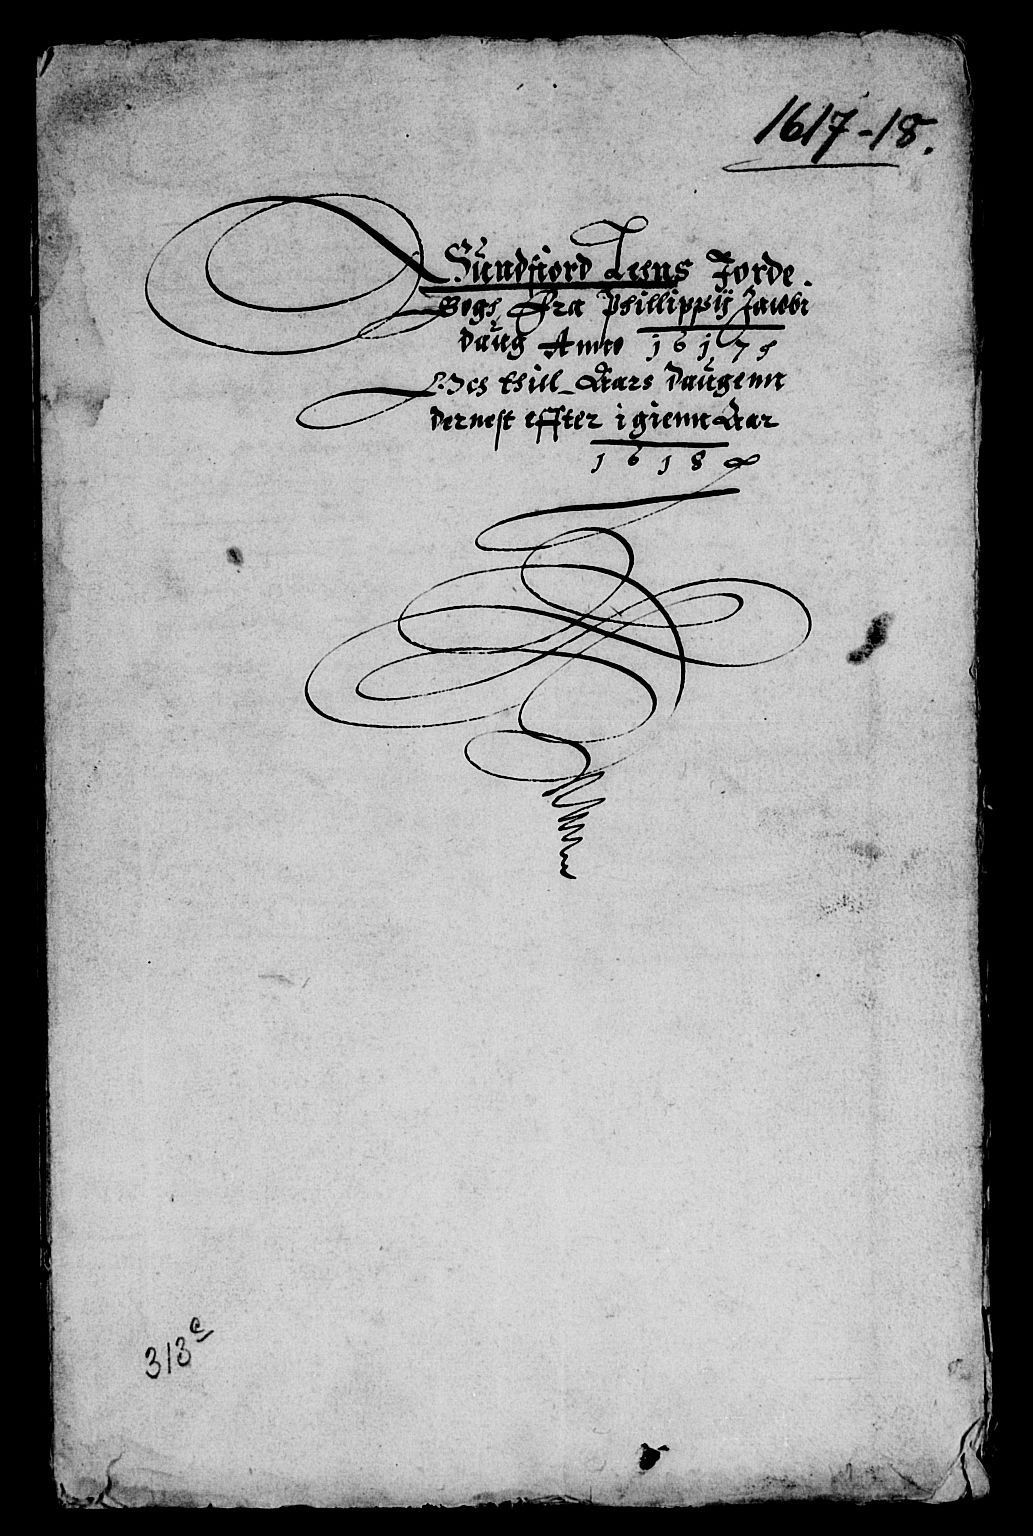 1617-18.
Sundfiord Leens Jorde
Bogh Fra Phillippij Jacobi
daug Anno 1617
Och thill Aars daugenn
dernest effter igienn Aar
1618
313c